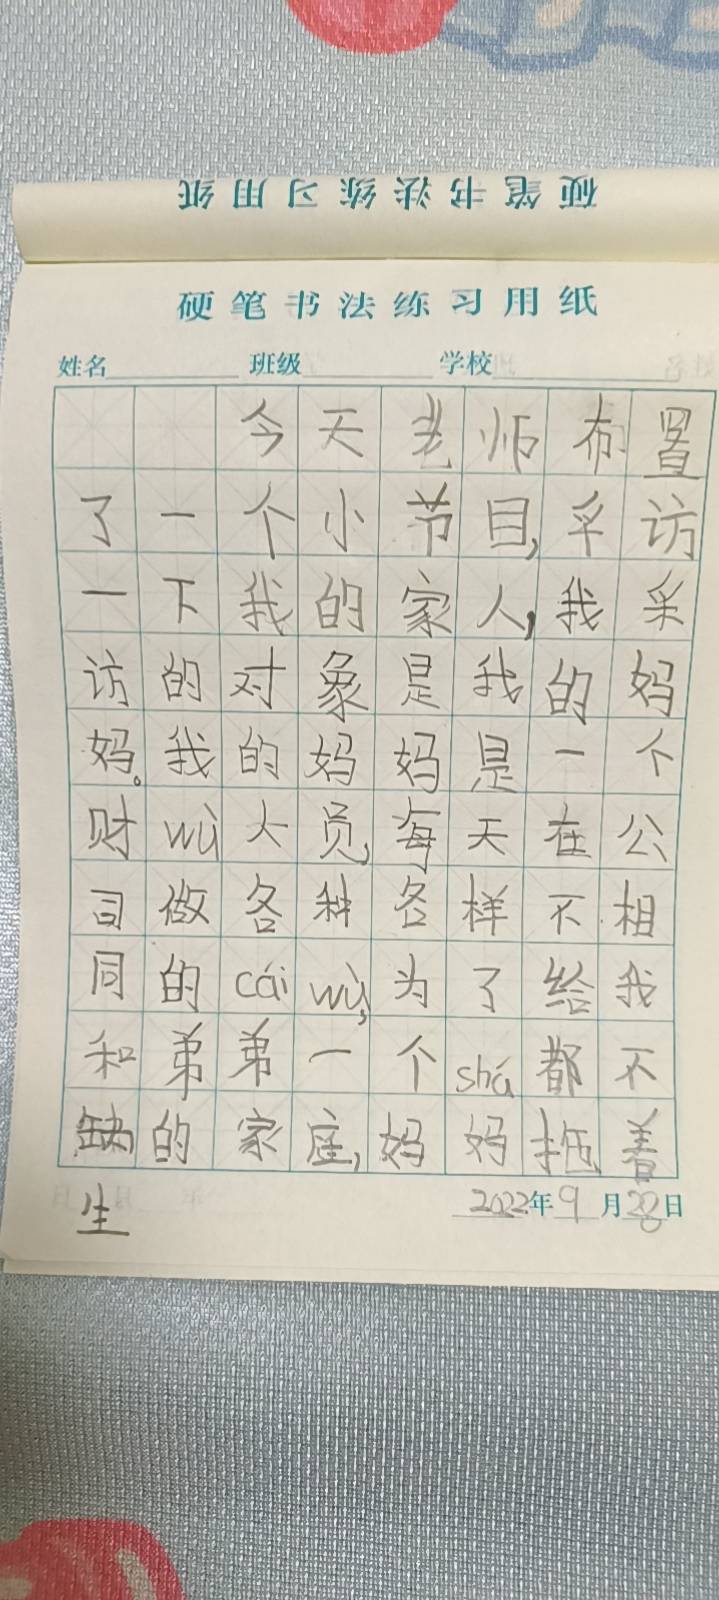 硬笔书法练习用纸
硬笔书法练习用纸
姓名 班级 学校
今天老师布置
了一个小节目,采访
一下我的家人,我采
访的对象是我的妈
妈。我的妈妈是一个
财wù人员,每天在公
司做各种各样不相
同的cái wù,为了给我
和弟弟一个shá都不
缺的家庭,妈妈拖着
生
2022年9月28日